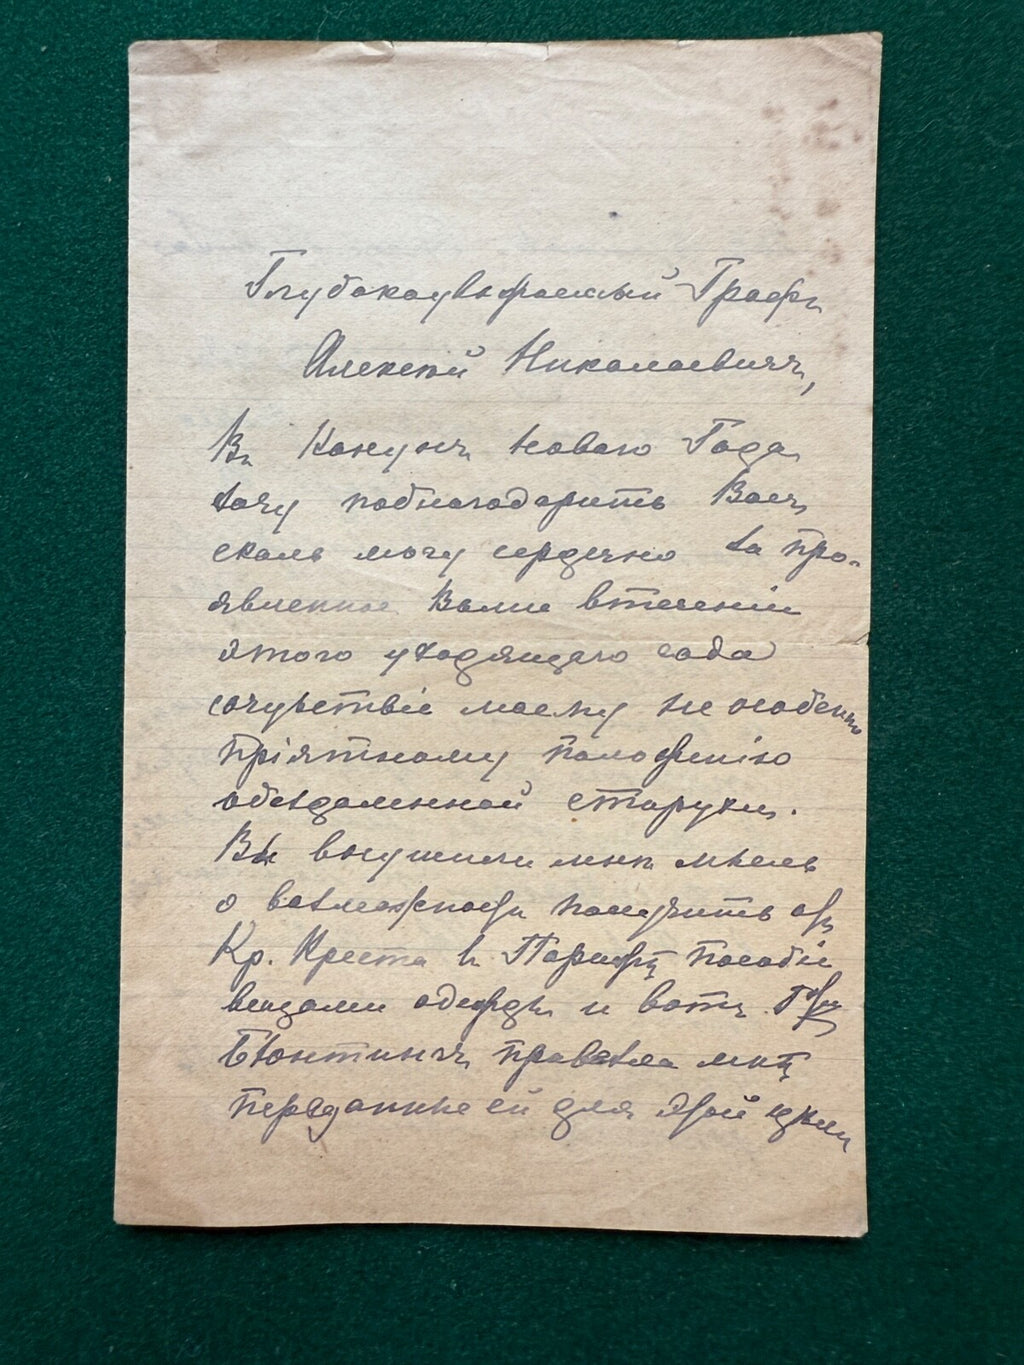 Глубокоуважаемый Графъ
Алексѣй Николаевичъ,
Въ Канунъ Новаго Года
хочу поблагодарить Васъ
сколь могу сердечно за про-
явленное Вами втеченіи
этого уходящаго года
сочувствіе моему не особенно
пріятному положенію
обездоленной старухи.
Вы внушили мнѣ мысль
о возможности получить отъ
Кр. Креста въ Парижѣ пособіе
вещами одежды и вотъ Гр.
привезла мнѣ
переданные ей для этой цѣли